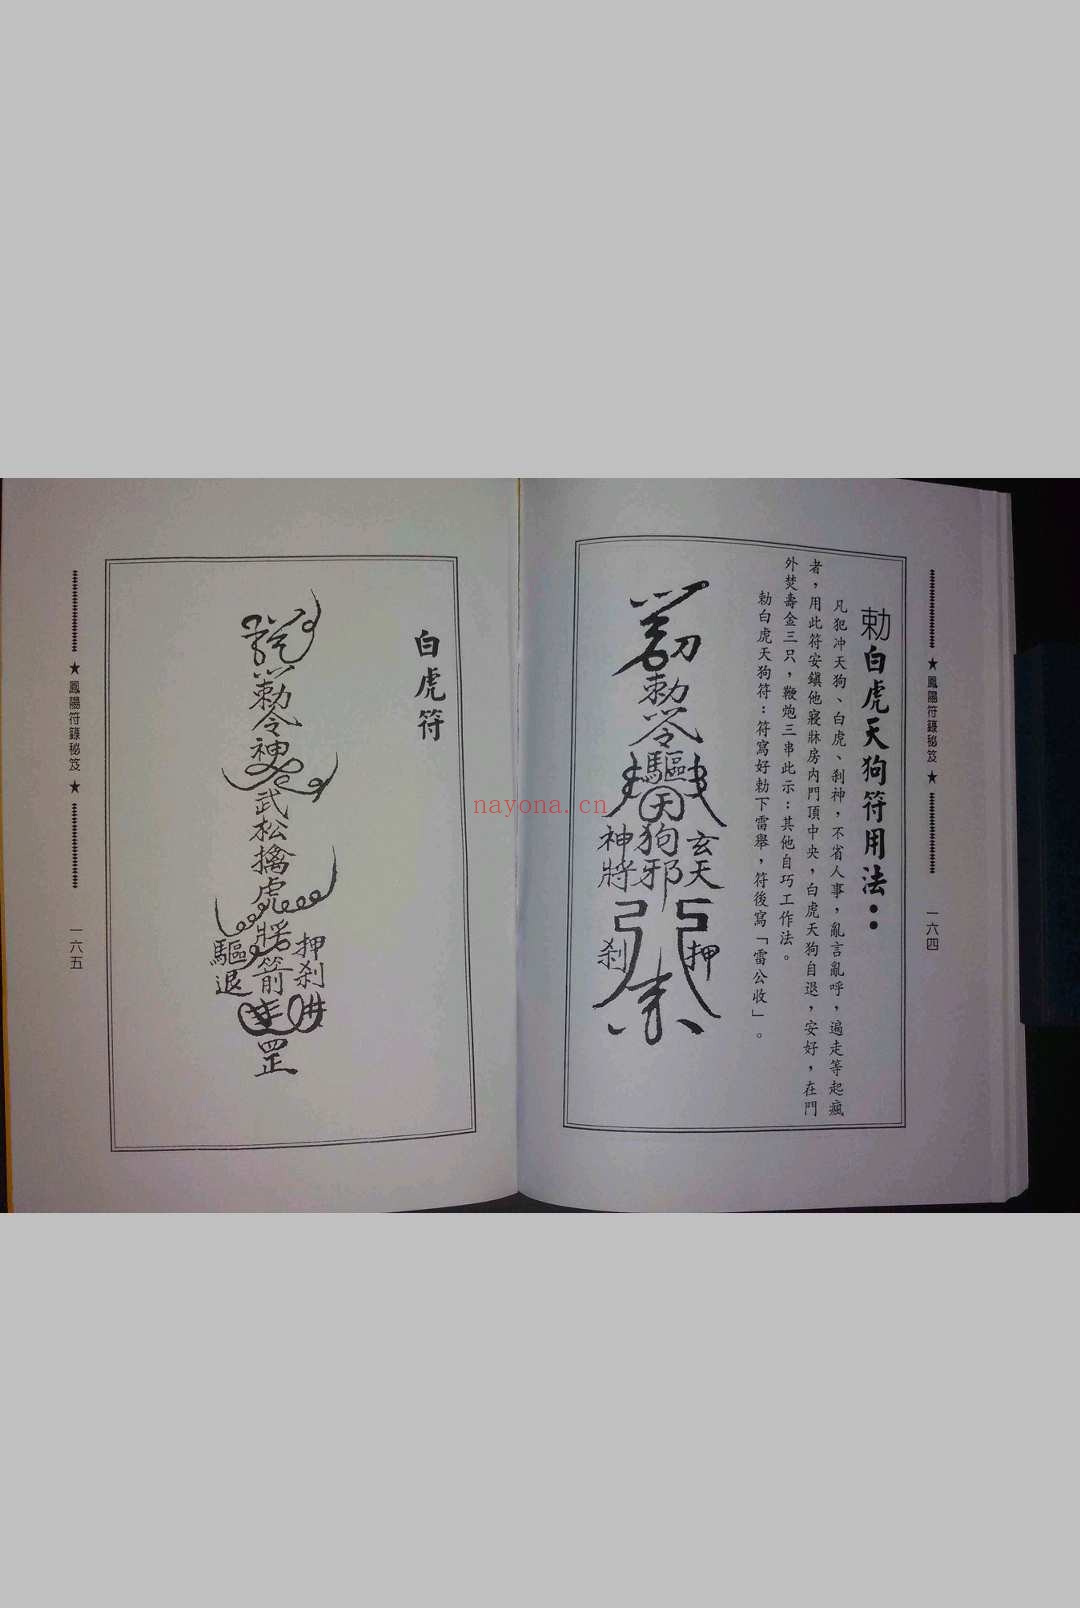 ★ 鳳陽符籙秘笈 ★
一六四
勅白虎天狗符用法：
凡犯冲天狗、白虎、刹神，不省人事，亂言亂呼，遍走等起瘋
者，用此符安鎮他寢牀房内門頂中央，白虎天狗自退，安好，在門
外焚壽金三只，鞭炮三串此示：其他自巧工作法。
勅白虎天狗符：符寫好勅下雷舉，符後寫「雷公收」。
勅
令
驅
天
狗
邪
玄天
神將
押
刹
nayona.cn
白虎符
勅令
武松擒虎
箭
押刹
驅退
罡
★ 鳳陽符籙秘笈 ★
一六五